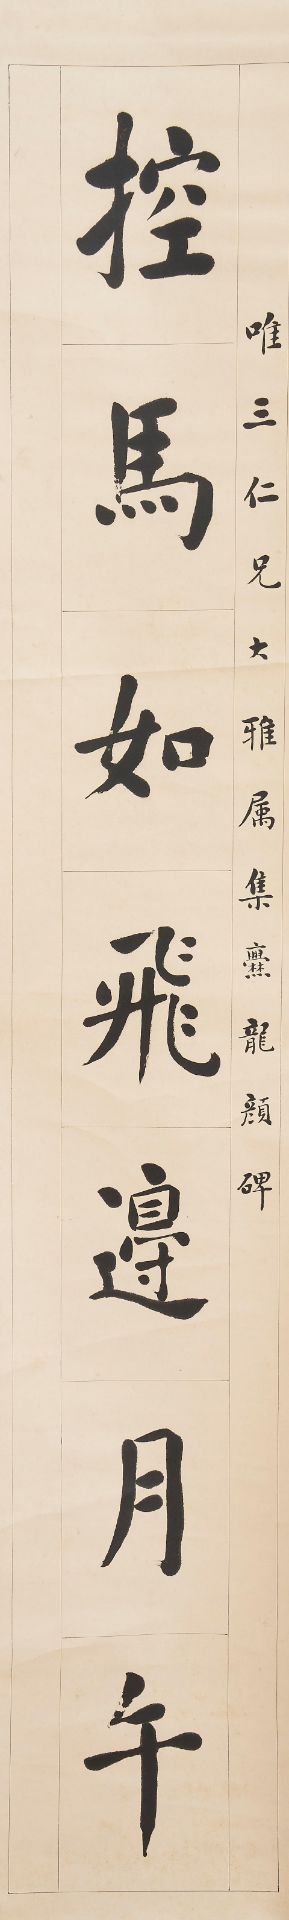 唯三仁兄大雅属集爨龍顔碑
控馬如飛邊月午